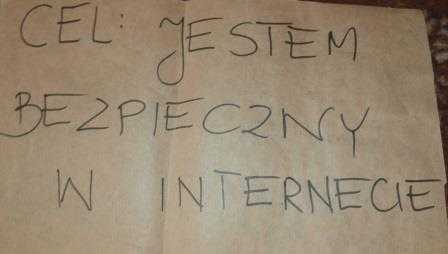 CEL: JESTEM
BEZPIECZNY
W INTERNECIE